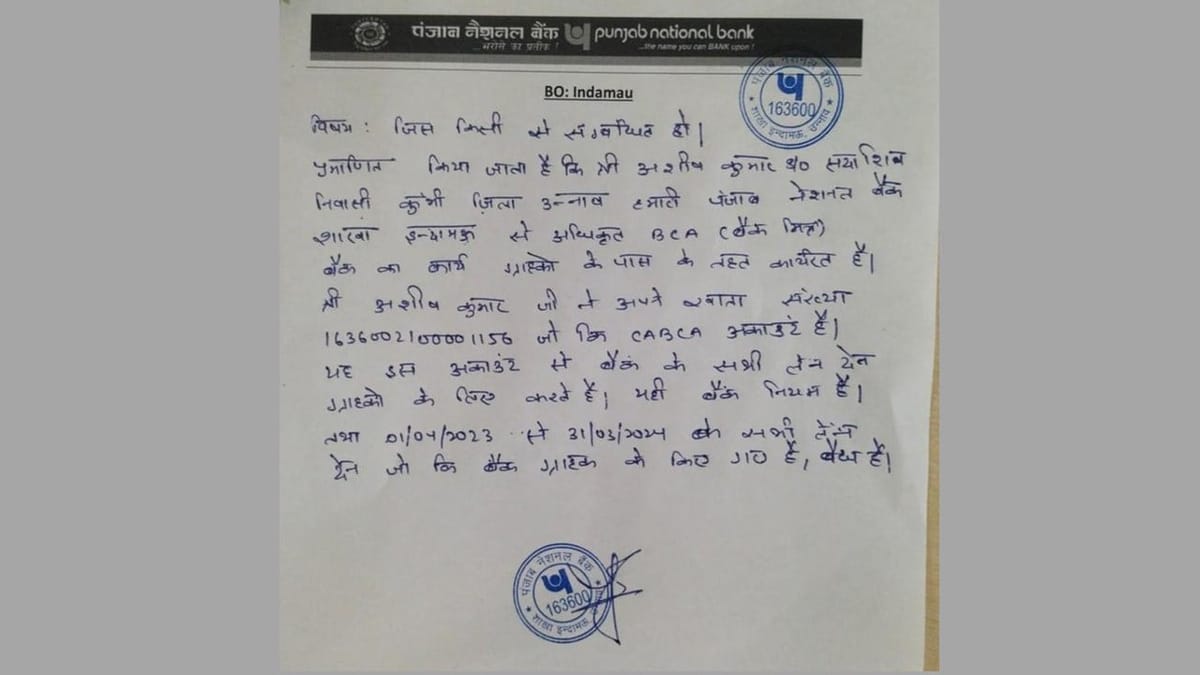 पंजाब नैशनल बैंक punjab national bank
...भरोसे का प्रतीक ! ...the name you can BANK upon !
पंजाब नेशनल बैंक
163600
शाखा इन्दामऊ, उन्नाव
BO: Indamau
विषय : जिस किसी से संबन्धित हो।
प्रमाणित किया जाता है कि श्री अशीष कुमार S/o
निवासी कुंभी ज़िला उन्नाव हमारी पंजाब नेशनल बैंक
शाखा इन्दामऊ से अधिकृत BCA (बैंक मित्र)
बैंक का कार्य ग्राहको के पास के तहत कार्यरत है।
श्री अशीष कुमार जी ने अपने खाता संख्या
1636002100001156 जो कि CABCA अकाउंट है।
यह इस अकाउंट से बैंक के सभी लेन देन
ग्राहको के लिए करते है। यही बैंक नियम है।
तथा 01/04/2023 से 31/03/2024 के सभी लेन
देन जो कि बैंक ग्राहक के किए गए है, वैध है।
पंजाब नेशनल बैंक
163600
शाखा इन्दामऊ, उन्नाव